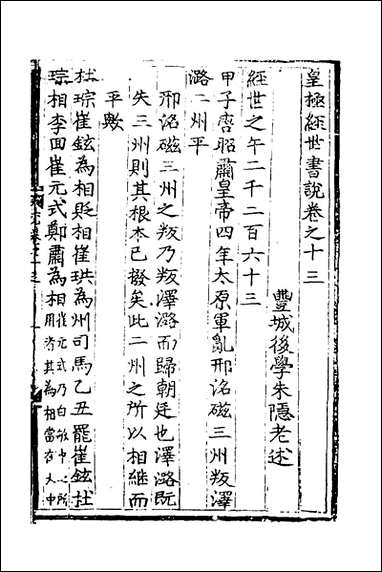 皇極經世書說卷之十三
豐城後學朱隱老述
經世之午二千二百六十三
甲子唐昭肅皇帝四年太原軍亂邢洺磁三州叛澤
潞二州平
邢洺磁三州之叛乃叛澤潞而歸朝廷也澤潞既
失三州則其根本已撥矣此二州之所以相繼而
平歟
杜琮崔鉉為相貶相崔珙為州司馬乙丑罷崔鉉杜
琮相李回崔元式鄭肅為相崔元式乃白敏中之所
用者其為相當在大中